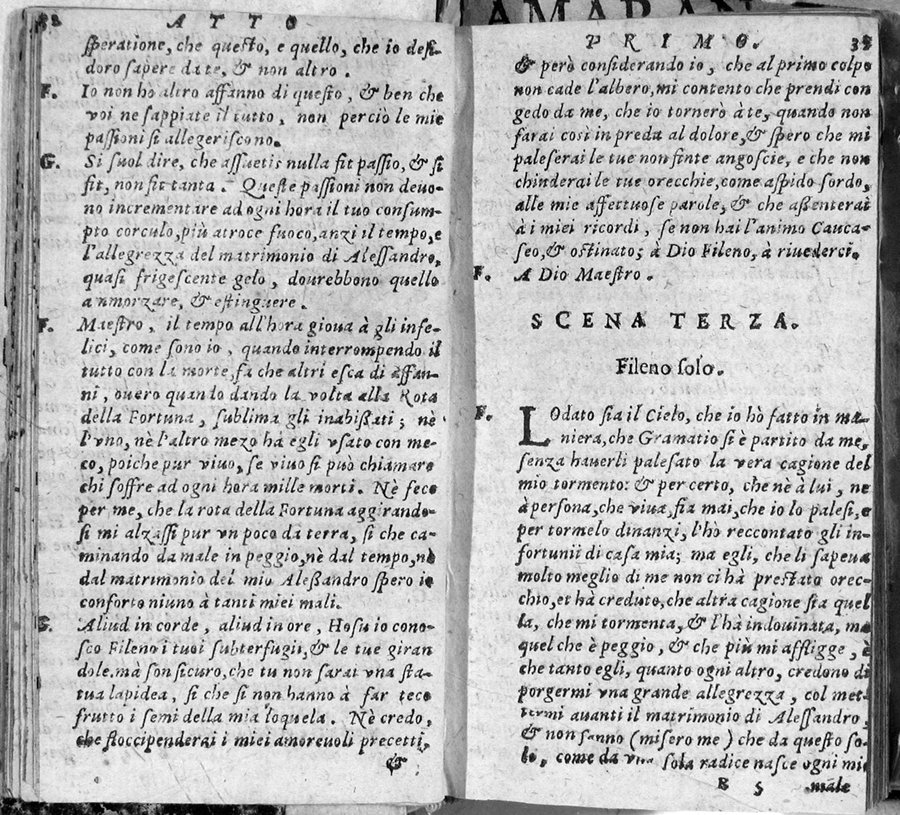 AMARAN
32 ATTO
speratione, che questo, e quello, che io desi-
doro sapere da te, & non altro.
F. Io non hò altro affanno di questo, & ben che
voi ne sappiate il tutto, non perciò le mie
passioni si allegeriscono.
G. Si suol dire, che assuetis nulla fit passio, & si
fit, non fit tanta. Queste passioni non deuo-
no incrementare ad ogni hora il tuo consum-
pto corculo, più atroce fuoco, anzi il tempo, e
l'allegrezza del matrimonio di Alessandro,
quasi frigescente gelo, dourebbono quello
ammorzare, & estinguere.
F. Maestro, il tempo all'hora gioua à gli infe-
lici, come sono io, quando interrompendo il
tutto con la morte, fà che altri esca di affan-
ni, ouero quando dando la volta alla Rota
della Fortuna, sublima gli inabissati; nè
l'vno, nè l'altro mezo hà egli vsato con me-
co, poiche pur viuo, se viuo si può chiamare
chi soffre ad ogni hora mille morti. Nè fece
per me, che la rota della Fortuna aggirando-
si mi alzassi pur vn poco da terra, si che ca-
minando da male in peggio, nè dal tempo, nè
dal matrimonio del mio Alessandro spero io
conforto niuno à tanti miei mali.
G. Aliud in corde, aliud in ore, Hosu io cono-
sco Fileno i tuoi subterfugii, & le tue giran
dole, mà son sicuro, che tu non sarai vna sta-
tua lapidea, si che si non hanno à far teco
frutto i semi della mia loquela. Nè credo,
che floccipenderai i miei amoreuoli precetti,
&
PRIMO. 33
& però considerando io, che al primo colpo
non cade l'albero, mi contento che prendi con
gedo da me, che io tornerò à te, quando non
sarai cosi in preda al dolore, & spero che mi
paleserai le tue non finte angoscie, e che non
chinderai le tue orecchie, come aspido sordo,
alle mie affettuose parole, & che assenterai
à i miei ricordi, se non hai l'animo Cauca-
seo, & ostinato; à Dio Fileno, à riuederci.
F. A Dio Maestro.
SCENA TERZA.
Fileno solo.
F. LOdato sia il Cielo, che io hò fatto in ma-
niera, che Gramatio si è partito da me,
senza hauerli palesato la vera cagione del
mio tormento: & per certo, che nè à lui, nè
à persona, che viua, sia mai, che io lo palesi, e
per tormelo dinanzi, l'hò reccontato gli in-
fortunii di casa mia; ma egli, che li sapeua
molto meglio di me non ci hà prestato orec-
chio, et hà creduto, che altra cagione sia quel
la, che mi tormenta, & l'hà indouinata, ma
quel che è peggio, & che più mi affligge, è
che tanto egli, quanto ogni altro, credono di
porgermi vna grande allegrezza, col met-
termi auanti il matrimonio di Alessandro,
& non sanno (misero me) che da questo so-
lo, come da vna sola radice nasce ogni mio
B 5 male